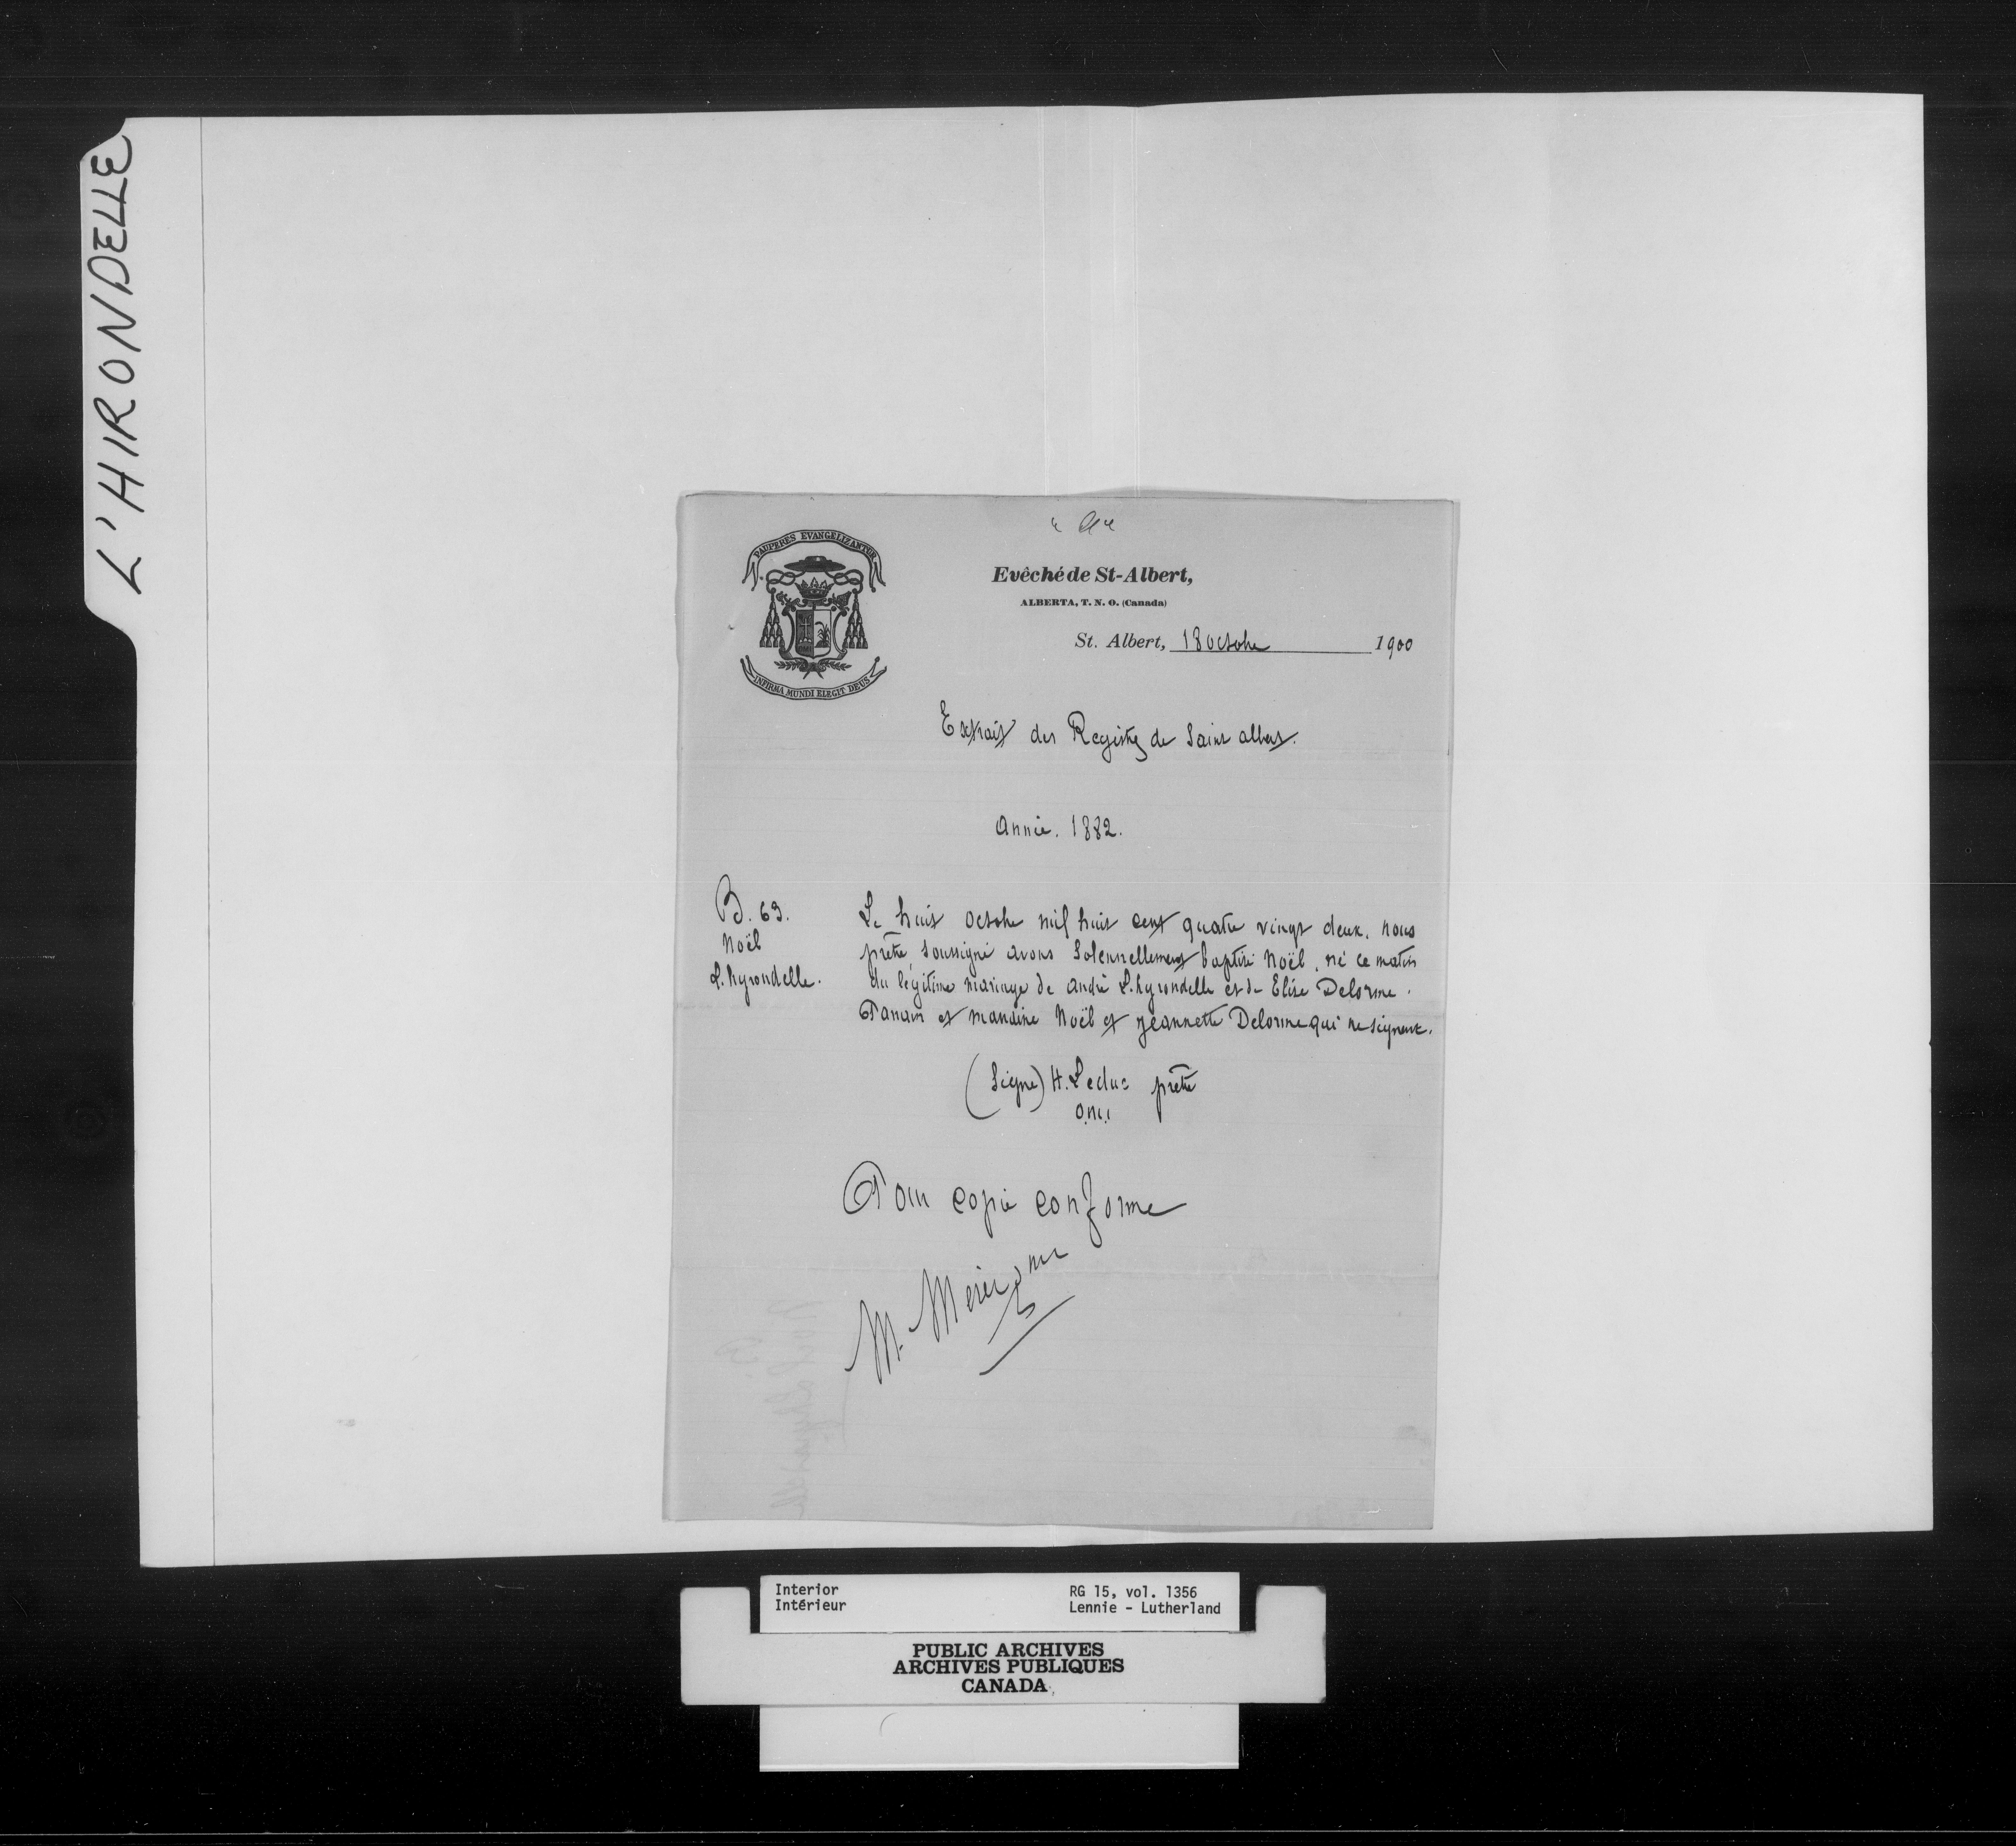 L'HIRONDELLE
"A"
PAUPERES EVANGELIZANTUR
OMI
INFIRMA MUNDI ELEGIT DEUS
Evêché de St-Albert,
ALBERTA, T. N. O. (Canada)
St. Albert, 18 octobre 1900
Extrait des Registres de Saint Albert.
Année. 1882.
B. 69.
Noël
L. hyrondelle.
Le huit octobre mil huit cent quatre vingt deux, nous
prêtre soussigné avons solennellement baptisé Noël, né ce matin
du légitime mariage de André L. hyrondelle et de Elise Delorme.
Parrain et marraine Noël et Jeannette Delorme qui ne signent.
(Signé) H. Leduc prêtre
o.m.i.
Pour copie conforme
M. Merer omi
Interior
Intérieur
RG 15, vol. 1356
Lennie - Lutherland
PUBLIC ARCHIVES
ARCHIVES PUBLIQUES
CANADA